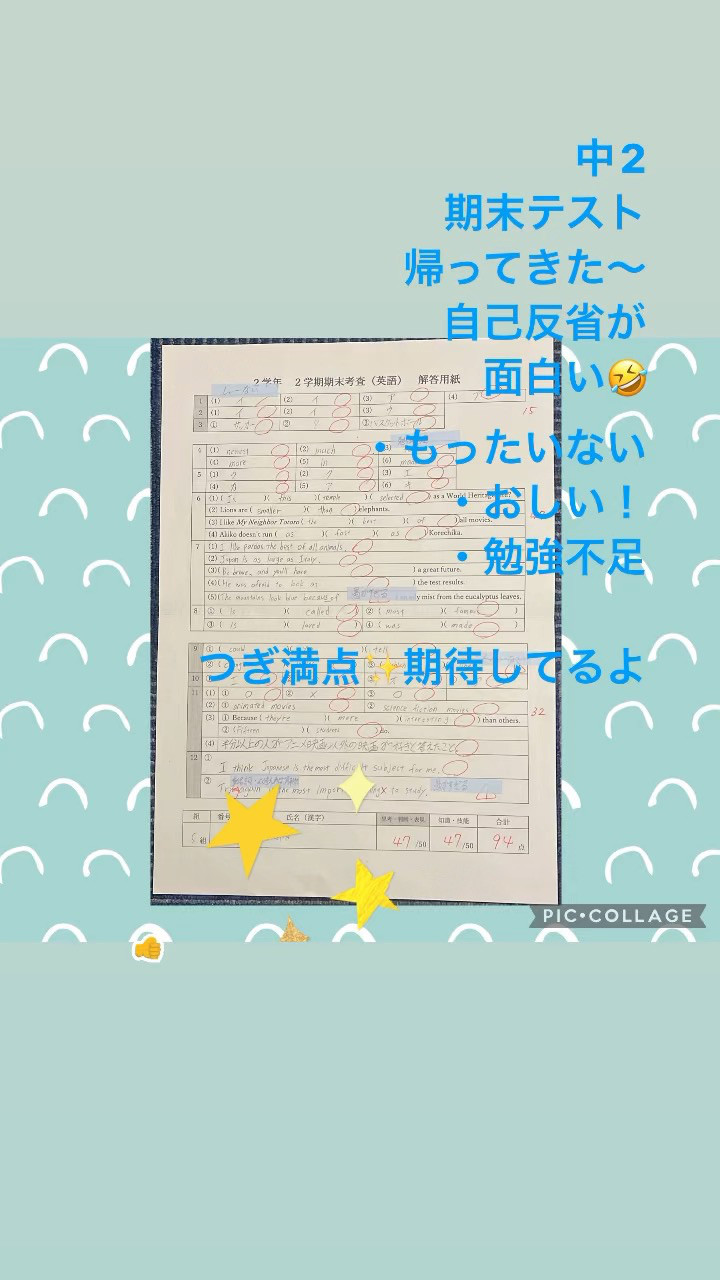 中2
期末テスト
帰ってきた〜
自己反省が
面白い🤣
・もったいない
・おしい！
・勉強不足
つぎ満点✨期待してるよ
2学年 2学期期末考査（英語） 解答用紙
1 (1) イ (2) イ (3) ア (4)
15
2 (1) イ (2) イ (3) ウ
3 ① サッカー ②
4 (1) newest (2) much (3)
(4) more (5) in (6)
5 (1) ク (2) ク (3) エ
(4) カ (5) ア (6) オ
6 (1) ( Is )( this )( temple )( selected ) as a World Heritage
(2) Lions are ( smaller )( than ) elephants.
(3) I like My Neighbor Totoro ( the )( best )( of ) all movies.
(4) Akiko doesn't run ( as )( fast )( as ) Korechika.
7 (1) I like pandas the best of all animals.
(2) Japan is as large as Italy.
(3) ( Be brave, and you'll have ) a great future.
(4) ( He was afraid to look at ) the test results.
(5) ( The mountains look blue because of y mist from the eucalyptus leaves.
8 ① ( is )( called ) ② ( most )( famous )
③ ( is )( loved ) ④ ( was )( made )
9 ① ( could )( tell
10
11 (1) ① O ② X ③ O
(2) ① animated movies ② science fiction movies
32
(3) ① Because ( they're )( more )( interesting ) than others.
② ( fifteen )( students ) do.
(4) 半分以上の人がアニメ映画以外の映画が好きと答えたこと
12 ①
I think Japanese is the most difficult subject for me.
②
the most to study.
組 番号 氏名（漢字） 思考・判断・表現 知識・技能 合計
5 組 47 /50 47 /50 94 点
PIC•COLLAGE